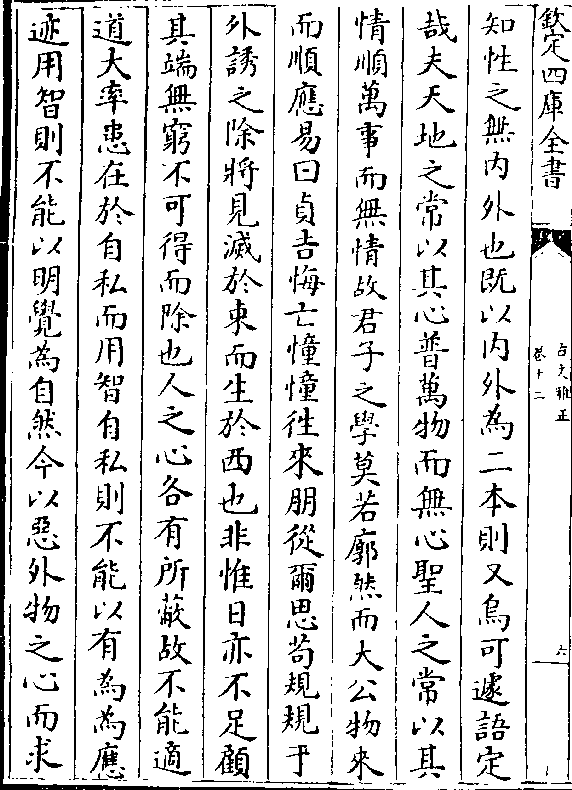 欽定四庫全書
古文雅正
卷十二
六
知性之無内外也既以内外為二本則又烏可遽語定
哉夫天地之常以其心普萬物而無心聖人之常以其
情順萬事而無情故君子之學莫若廓然而大公物來
而順應易曰貞吉悔亡憧憧徃來朋從爾思茍規規于
外誘之除將見滅於東而生於西也非惟日亦不足顧
其端無窮不可得而除也人之心各有所蔽故不能適
道大率患在於自私而用智自私則不能以有為為應
迹用智則不能以明覺為自然今以惡外物之心而求